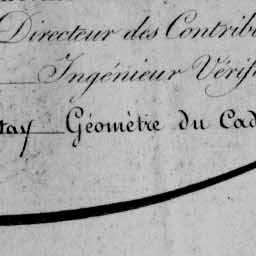 Directeur des Contrib
Ingénieur Vérif
tay Géomètre du Cad